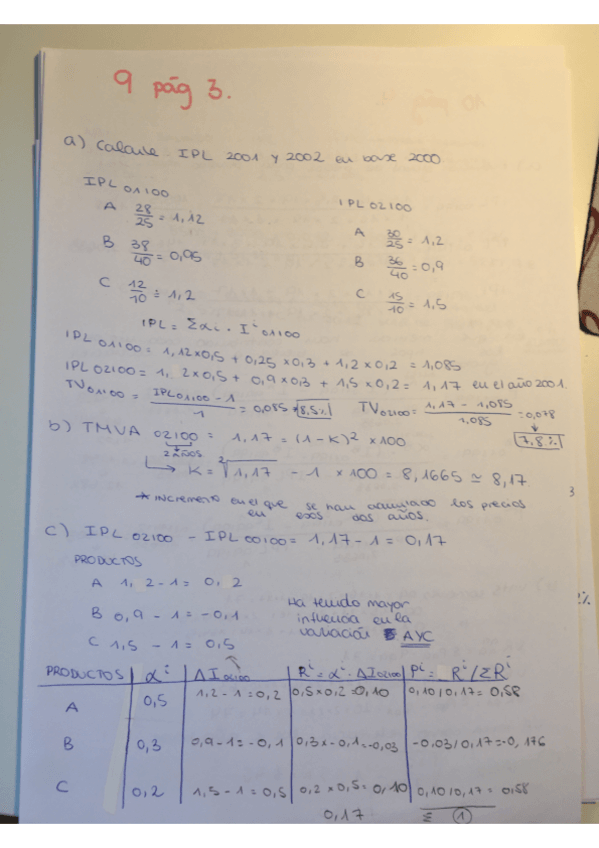 9 pág 3.
a) Calcule IPL 2001 y 2002 en base 2000
IPL 01/00
A 28/25 = 1,12
B 38/40 = 0,95
C 12/10 = 1,2
IPL 02/00
A 30/25 = 1,2
B 36/40 = 0,9
C 15/10 = 1,5
IPL = Σαi · I^i 01/00
IPL 01/00 = 1,12x0,5 + 0,25 x0,3 + 1,2 x 0,2 = 1,085
IPL 02/00 = 1, 2x0,5 + 0,9x0,3 + 1,5 x0,2 = 1,17 en el año 2001.
TV 01/00 = IPL 01/00 - 1 / 1 = 0,085 * 8,5%
TV 02/00 = 1,17 - 1,085 / 1,085 = 0,078
7,8%
b) TMVA 02/00 = 1,17 = (1-K)² x100
2 AÑOS
K = ²√1,17 - 1 x 100 = 8,1665 ≃ 8,17
* INCREMENTO en el que se han acumulado los precios
en esos dos años.
3
c) IPL 02/00 - IPL 00/00 = 1,17-1 = 0,17
PRODUCTOS
A 1, 2-1 = 0, 2
B 0,9 - 1 = -0,1
C 1,5 - 1 = 0,5
Ha tenido mayor
influencia en la
variación AYC
2%
PRODUCTOS α^i ΔI 02/00 R^i = α^i · ΔI 02/00 P^i = R^i/ΣR^i
A 0,5 1,2 - 1 = 0,2 0,5 x 0,2 = 0,10 0,10/0,17 = 0,58
B 0,3 0,9-1 = -0,1 0,3x -0,1 = -0,03 -0.03/0,17 = -0, 176
C 0,2 1,5 - 1 = 0,5 0,2 x 0,5 = 0,10 0,10/0,17 = 0,58
0,17 Ξ 1